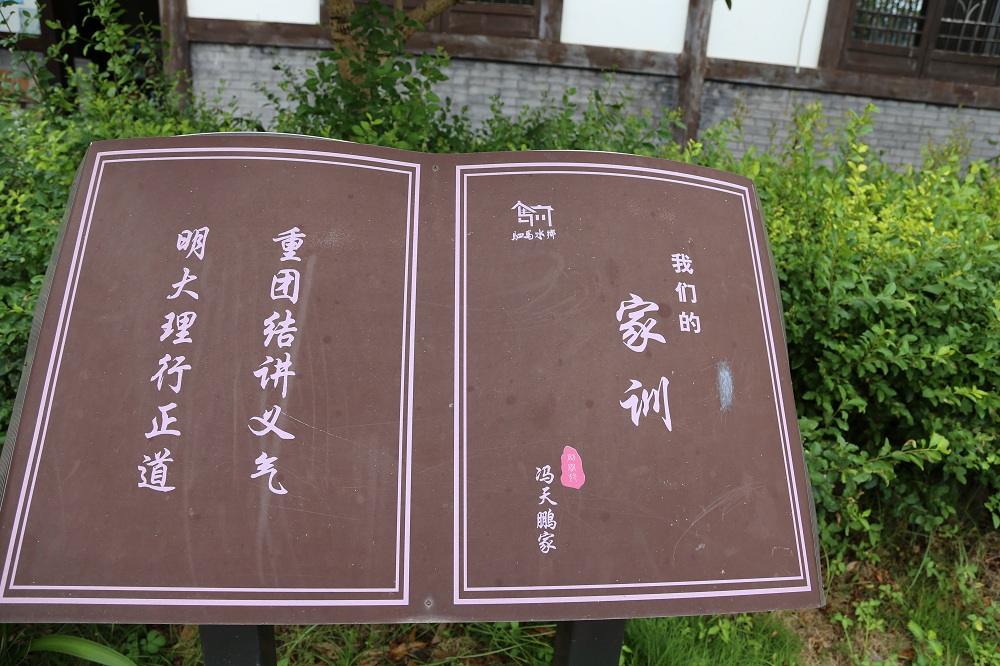 我们的
家训
驷马水乡
冯天鹏家
重团结讲义气
明大理行正道